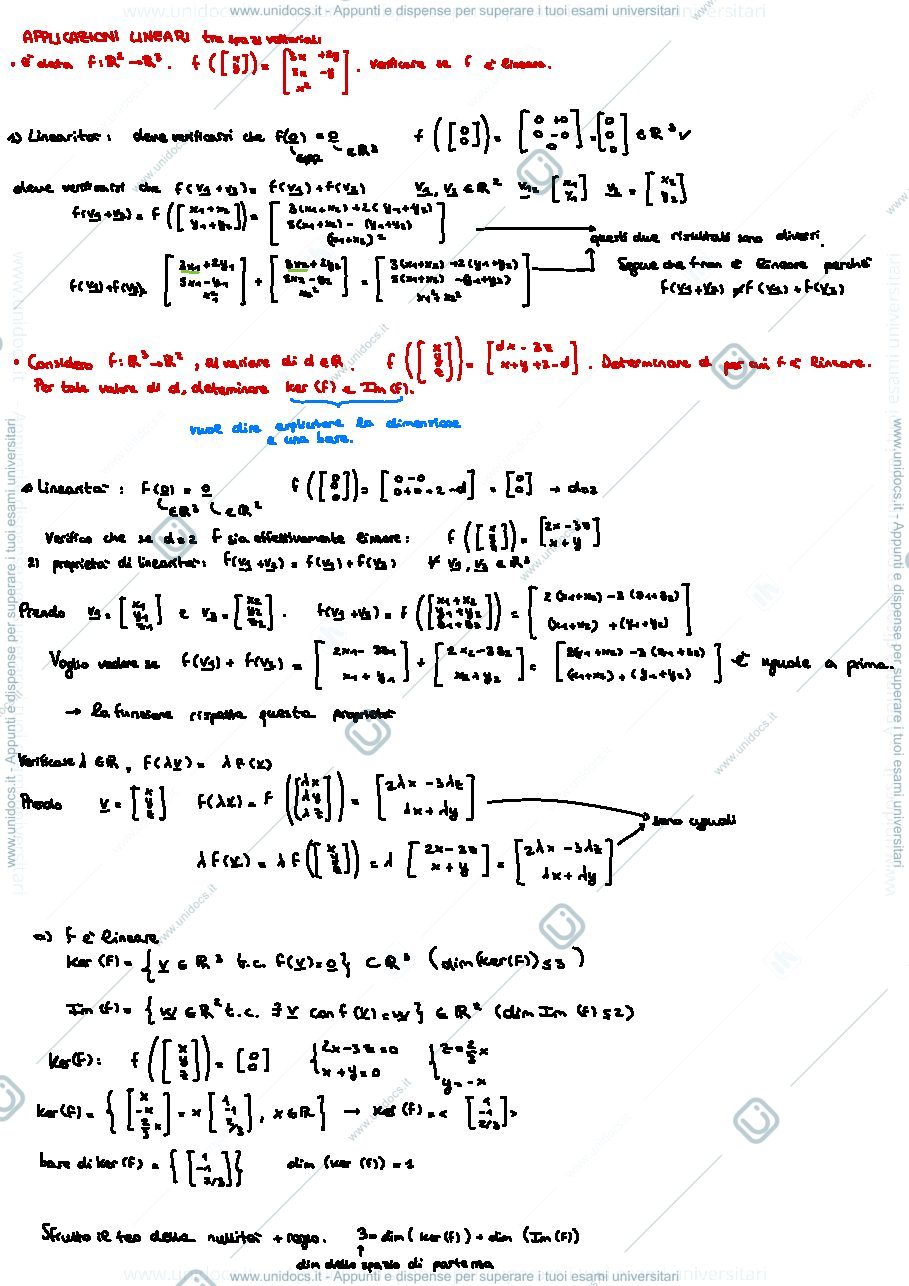 www.unidocs.it - Appunti e dispense per superare i tuoi esami universitari
APPLICAZIONI LINEARI tra spazi vettoriali
• È data f: R² → R³. f([x y]) = [3x +2y, 5x -y, x²]. Verificare se f è lineare.
1) Linearità: deve verificarsi che f(0) = 0 f([0 0]) = [0+0, 0-0, 0] = [0 0 0] ∈ R³ ✓
∈R² ∈R³
deve verificarsi che f(v1+v2) = f(v1)+f(v2) v1, v2 ∈ R² v1 = [x1 y1] v2 = [x2 y2]
f(v1+v2) = f([x1+x2, y1+y2]) = [3(x1+x2)+2(y1+y2), 5(x1+x2) - (y1+y2), (x1+x2)²]
questi due risultati sono diversi.
f(v1)+f(v2) = [3x1+2y1, 5x1-y1, x1²] + [3x2+2y2, 5x2-y2, x2²] = [3(x1+x2)+2(y1+y2), 5(x1+x2) -(y1+y2), x1²+x2²]
Segue che f non è lineare perché
f(v1+v2) ≠ f(v1)+f(v2)
• Considero f: R³→R², al variare di d ∈ R. f([x y z]) = [dx - 3z, x+y+2-d]. Determinare d per cui f è lineare.
Per tale valore di d, determinare ker(f) e Im(f).
vuol dire esplicitare la dimensione
e una base.
1) Linearità: f(0) = 0 f([0 0 0]) = [0-0, 0+0+2-d] = [0 0] → d=2
∈R³ ∈R²
Verifico che se d=2 f sia effettivamente lineare: f([x y z]) = [2x-3z, x+y]
2) proprietà di linearità: f(v1+v2) = f(v1)+f(v2) ∀ v1, v2 ∈ R³
Prendo v1 = [x1 y1 z1] e v2 = [x2 y2 z2]. f(v1+v2) = f([x1+x2, y1+y2, z1+z2]) = [2(x1+x2) -3(z1+z2), (x1+x2) + (y1+y2)]
Voglio vedere se f(v1) + f(v2) = [2x1 - 3z1, x1+y1] + [2x2-3z2, x2+y2] = [2(x1+x2) -3(z1+z2), (x1+x2) + (y1+y2)] è uguale a prima.
→ la funzione rispetta questa proprietà
Verificare λ ∈ R, f(λv) = λf(v)
Prendo v = [x y z] f(λv) = f([λx λy λz]) = [2λx -3λz, λx+λy]
sono uguali
λf(v) = λf([x y z]) = λ[2x-3z, x+y] = [2λx -3λz, λx+λy]
=) f è lineare
Ker(f) = {v ∈ R³ t.c. f(v)=0} ⊂ R³ (dim(ker(f)) ≤ 3)
Im(f) = {w ∈ R² t.c. ∃ v con f(v)=w} ∈ R² (dim Im(f) ≤ 2)
Ker(f): f([x y z]) = [0 0] {2x-3z=0, x+y=0 {z=2/3 x, y=-x
Ker(f) = {[x, -x, 2/3 x] = x[1, -1, 2/3], x∈R} → Ker(f) = <[1, -1, 2/3]>
base di ker(f) = {[1, -1, 2/3]} dim(ker(f)) = 1
Sfrutto il teo della nullità + rango. 3 = dim(ker(f)) + dim(Im(f))
dim dello spazio di partenza
www.unidocs.it - Appunti e dispense per superare i tuoi esami universitari